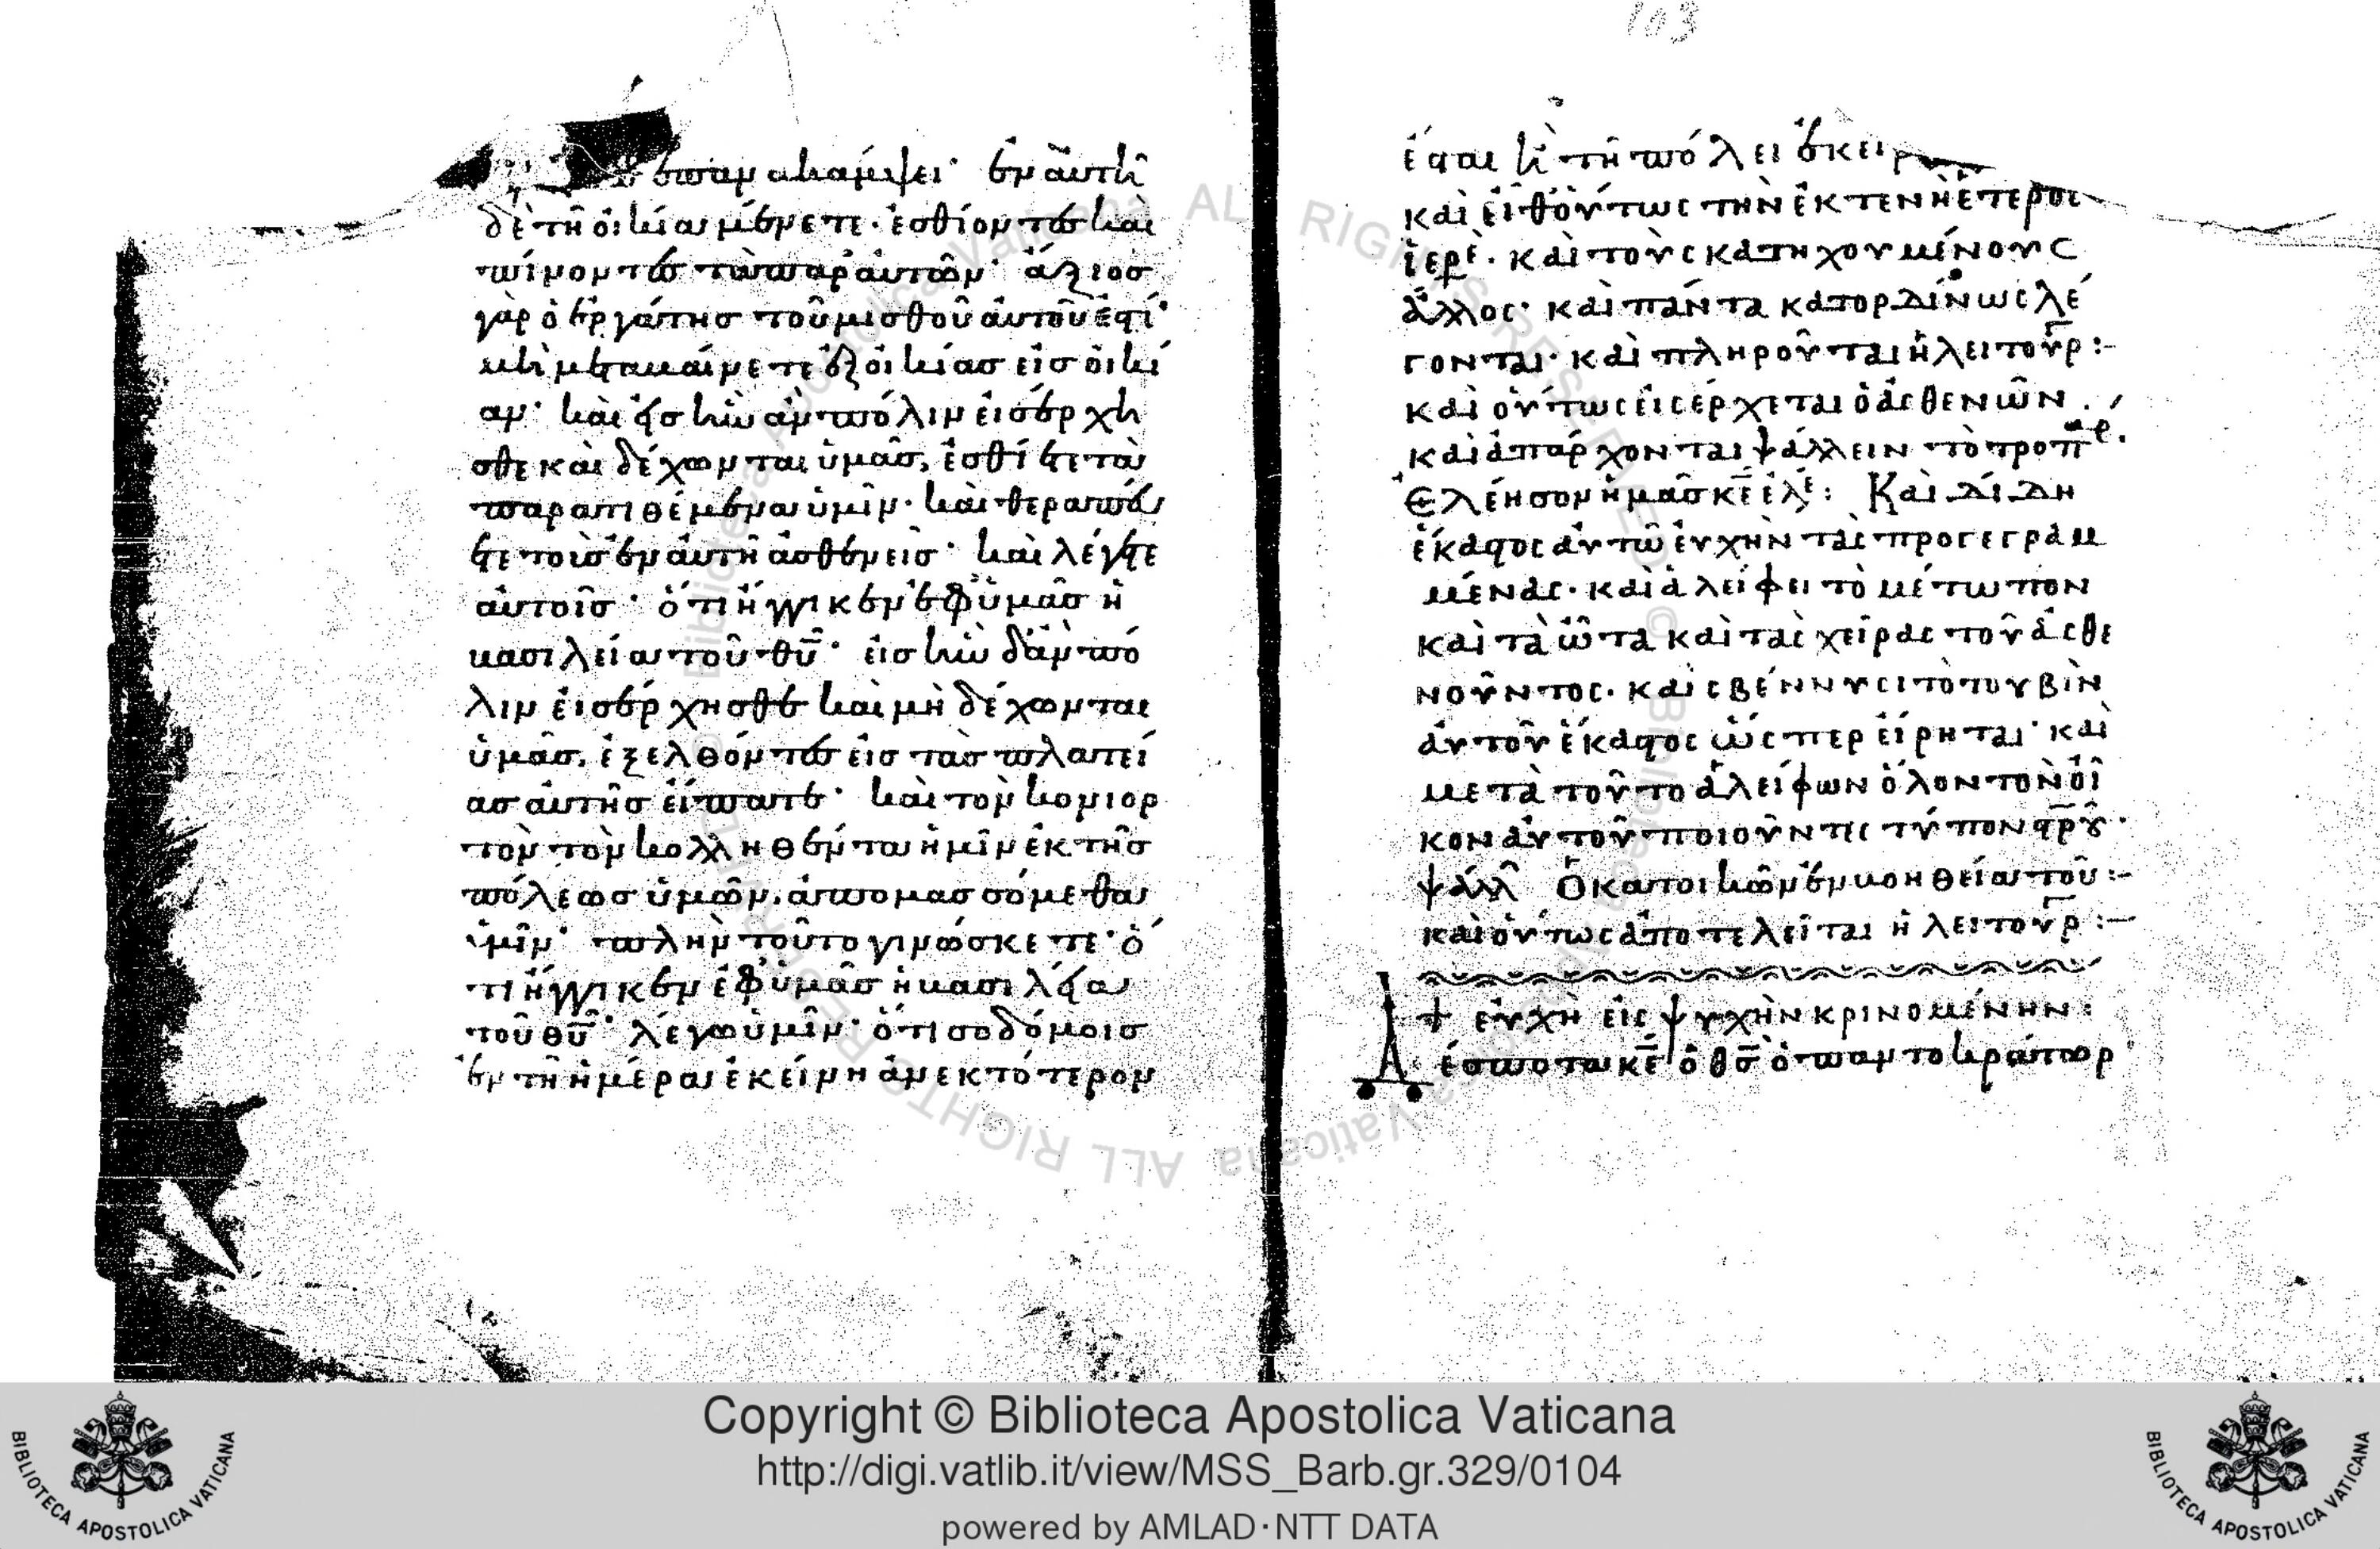 ἐπαν ακάμψει· ἐν αὐτῆ
δὲ τῆ οἰκία μένετε· ἐσθίοντες καὶ
πίνοντες τὰ παρ αὐτῶν· ἄξιος
γὰρ ὁ ἐργάτης τοῦ μισθοῦ αὐτοῦ ἐστί·
μὴ μεταβαίνετε ἐξ οἰκίας εἰς οἰκί
αν· καὶ εἰς ἣν ἀν πόλιν εἰσέρχη
σθε καὶ δέχωνται ὑμᾶς, ἐσθίετε τὰ
παρατιθέμενα ὑμῖν· καὶ θεραπεύ
ετε τοὺς ἐν αὐτῆ ἀσθενεῖς· καὶ λέγετε
αὐτοῖς· ὅτι ἤγγικεν ἐφ ὑμᾶς ἡ
βασιλεία τοῦ θῦ· εἰς ἣν δἀν πό
λιν εἰσέρχησθε καὶ μὴ δέχωνται
ὑμᾶς, ἐξελθόντες εἰς τὰς πλατεί
ας αὐτῆς εἴπατε· καὶ τὸν κονιορ
τὸν τὸν κολληθέντα ἡμῖν ἐκ τῆς
πόλεως ὑμῶν, ἀπομασσόμεθα
ὑμῖν· πλὴν τοῦτο γινώσκετε· ὅ
τι ἤγγικεν ἐφ ὑμᾶς ἡ βασιλεία
τοῦ θῦ· λέγω ὑμῖν· ὅτι σοδόμοις
ἐν τῆ ἡμέρα ἐκείνη ἀνεκτότερον
103
ἔσται ἢ τῆ πόλει ἐκείν
καὶ εἶθ οὕτως τὴν ἐκτενῆ ἕτερος
ἱερέ· καὶ τοὺς κατηχουμένους
ἄλλος· καὶ πάντα κατορδίνως λέ
γονται· καὶ πληροῦται ἡ λειτουρ:-
καὶ οὕτως εἰσέρχεται ὁ ἀσθενῶν.
καὶ ἀπάρχονται ψάλλειν τὸ τροπρ.
Ἐλέησον ἡμᾶς κε ἐλέ: Καὶ δίδη
ἕκαστος αὐτῶ εὐχὴν τὰς προγεγραμ
μένας· καὶ ἀλείφει τὸ μέτωπον
καὶ τὰ ὦτα καὶ τὰς χεῖρας τοῦ ἀσθε
νοῦντος· καὶ σβέννυσι τὸ τουβὶν
αὐτοῦ ἕκαστος ὥσπερ εἴρηται· καὶ
μετὰ τοῦτο ἀλείφων ὅλον τὸν οἶ
κον αὐτοῦ ποιοῦντες τύπον στρου·
ψάλλ Ὁ κατοικῶν ἐν βοηθεία τοῦ:-
καὶ οὕτως ἀποτελεῖται ἡ λειτουρ:-
+ εὐχὴ εἰς ψυχὴν κρινομένην:
Δέσποτα κε ὁ θς ὁ παντοκράτωρ
Copyright © Biblioteca Apostolica Vaticana
http://digi.vatlib.it/view/MSS_Barb.gr.329/0104
powered by AMLAD·NTT DATA
BIBLIOTECA APOSTOLICA VATICANA
BIBLIOTECA APOSTOLICA VATICANA